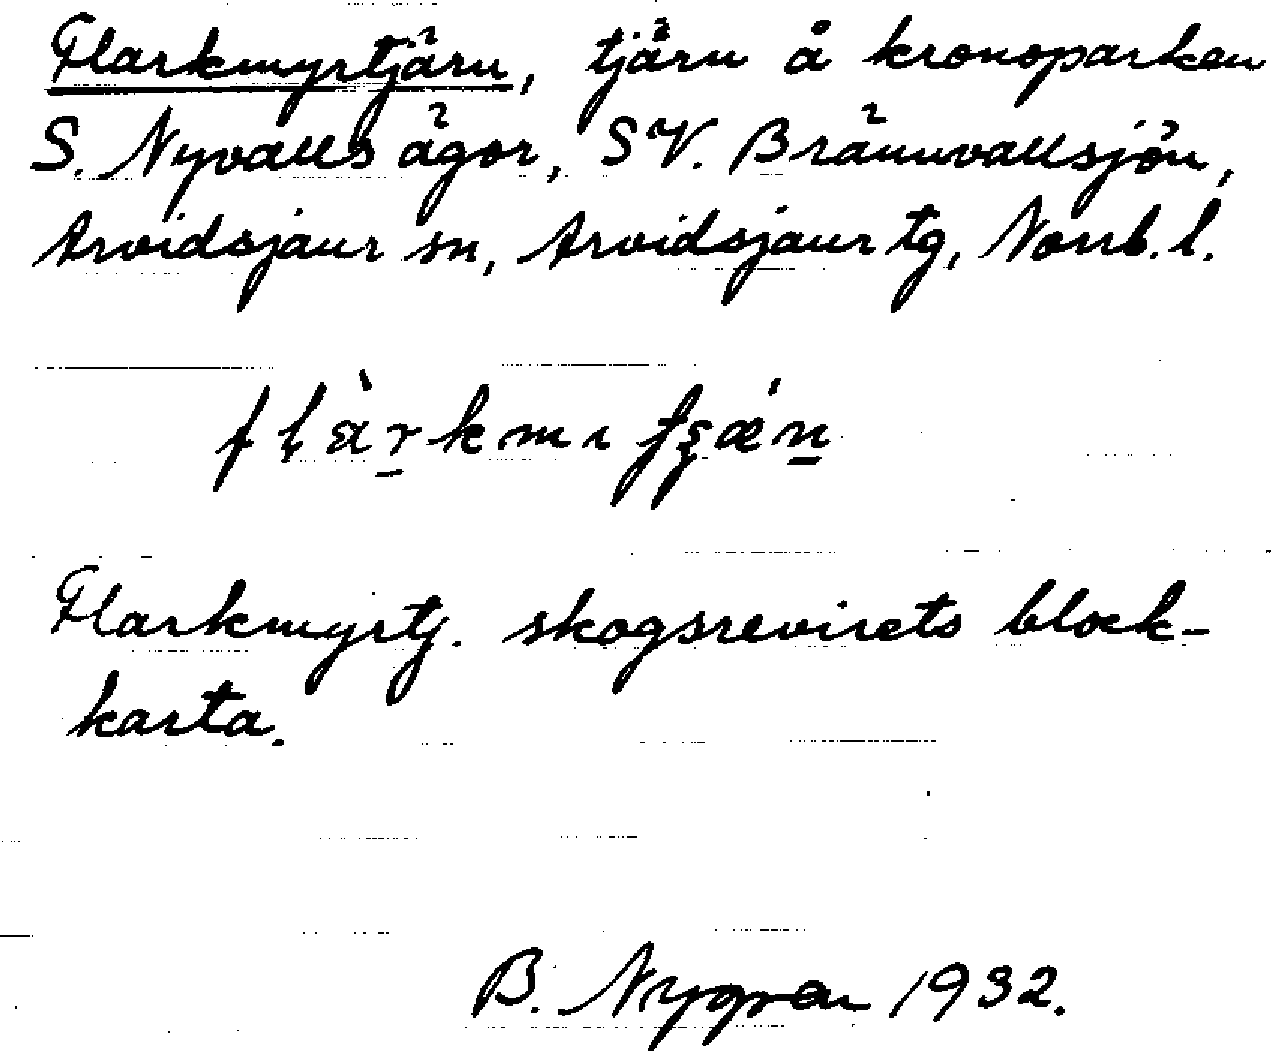 Flarkmyrtjärn, tjärn å kronoparken
S. Nyvalls ägor, SV. Brännvallsjön,
Arvidsjaur sn, Arvidsjaur tg, Norrb. l.
Flarkmyrtj. skogsrevirets block-
karta.
B. Nygren 1932.